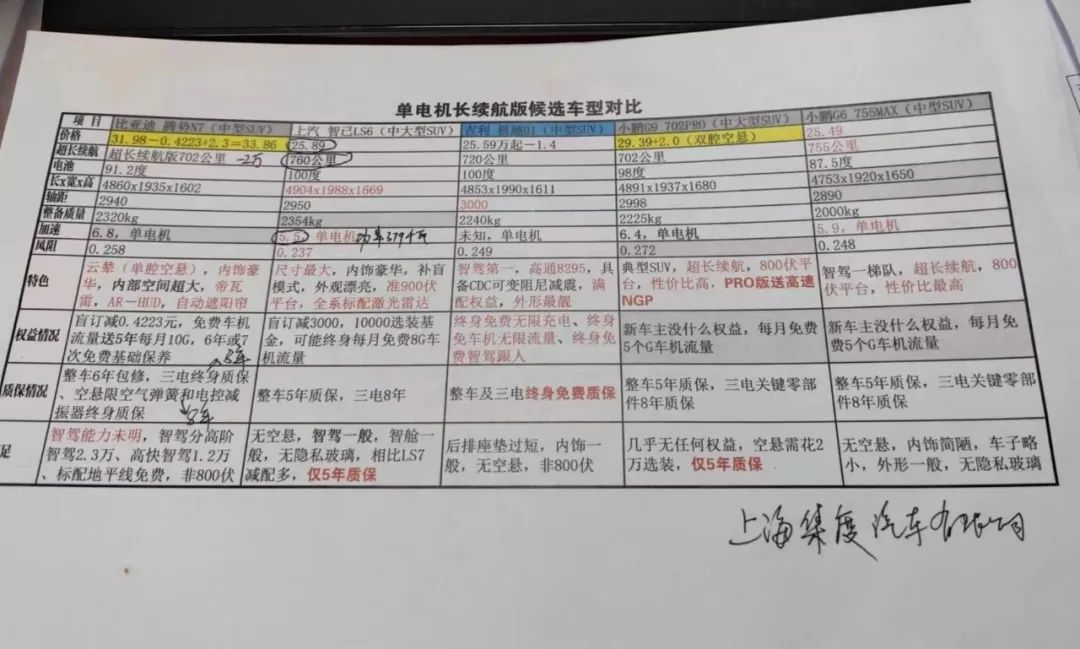 单电机长续航版候选车型对比
项 目 比亚迪 腾势N7（中型SUV） 上汽 智己LS6（中大型SUV） 吉利 极越01（中型SUV） 小鹏G9 702PRO（中大型SUV） 小鹏G6 755MAX（中型SUV）
价格 31.98-0.4223+2.3=33.86 25.89 25.59万起-1.4 29.39+2.0（双腔空悬） 25.49
超长续航 超长续航版702公里 -2万 760公里 720公里 702公里 755公里
电池 91.2度 100度 100度 98度 87.5度
长x宽x高 4860x1935x1602 4904x1988x1669 4853x1990x1611 4891x1937x1680 4753x1920x1650
轴距 2940 2950 3000 2998 2890
整备质量 2320kg 2354kg 2240kg 2225kg 2000kg
加速 6.8，单电机 5.5，单电机 功率379千瓦 未知，单电机 6.4，单电机 5.9，单电机
风阻 0.258 0.237 0.249 0.272 0.248
特色
云辇（单腔空悬），内饰豪
华，内部空间超大，帝瓦
雷，AR-HUD，自动遮阳帘
尺寸最大，内饰豪华，补盲
模式，外观漂亮，准900伏
平台，全系标配激光雷达
智驾第一，高通8295，具
备CDC可变阻尼减震，满
配权益，外形最靓
典型SUV，超长续航，800伏平
台，性价比高，PRO版送高速
NGP
智驾一梯队，超长续航，800
伏平台，性价比最高
权益情况
盲订减0.4223元，免费车机
流量送5年每月10G，6年或7
次免费基础保养
8年
盲订减3000，10000选装基
金，可能终身每月免费8G车
机流量
终身免费无限充电、终身
免车机无限流量、终身免
费智驾跟人
新车主没什么权益，每月免费
5个G车机流量
新车主没什么权益，每月免
费5个G车机流量
质保情况
整车6年包修，三电终身质保
、空悬限空气弹簧和电控减
振器终身质保
8年
整车5年质保，三电8年
整车及三电终身免费质保
整车5年质保，三电关键零部
件8年质保
整车5年质保，三电关键零部
件8年质保
足
智驾能力未明，智驾分高阶
智驾2.3万、高快智驾1.2万
、标配地平线免费，非800伏
无空悬，智驾一般，智舱一
般，无隐私玻璃，相比LS7
减配多，仅5年质保
后排座垫过短，内饰一
般，无空悬，非800伏
几乎无任何权益，空悬需花2
万选装，仅5年质保
无空悬，内饰简陋，车子略
小，外形一般，无隐私玻璃
上海集度汽车有限公司